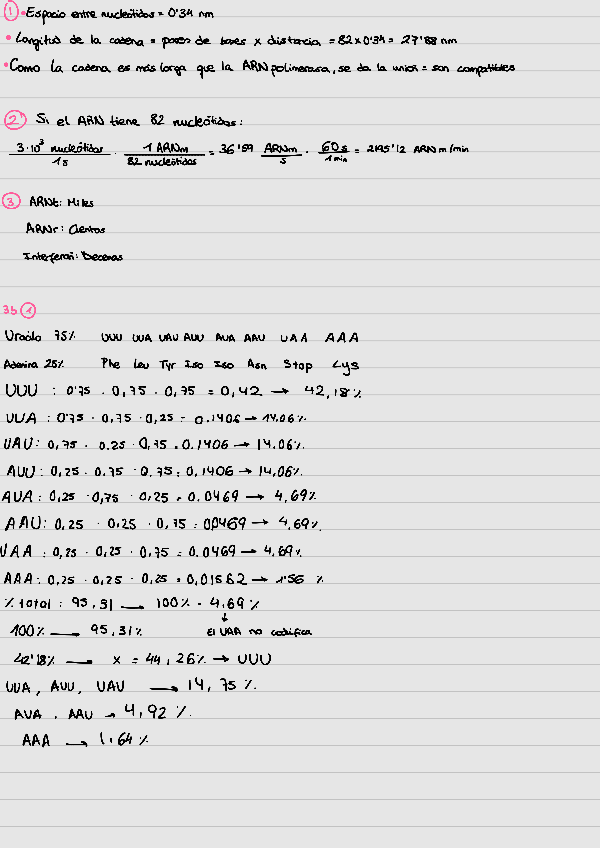 1 • Espacio entre nucleótidos = 0'34 nm
• Longitud de la cadena = pares de bases x distancia = 82 x 0'34 = 27'88 nm
• Como la cadena es más larga que la ARN polimerasa, se da la unión = son compatibles
2 Si el ARN tiene 82 nucleótidos:
3·10³ nucleótidos / 1s · 1 ARNm / 82 nucleótidos = 36'59 ARNm / s · 60s / 1 min = 2195'12 ARNm/min
3 ARNt: Miles
ARNr: Cientos
Interferon: Decenas
3b 1
Uracilo 75% UUU UUA UAU AUU AUA AAU UAA AAA
Adenina 25% Phe Leu Tyr Iso Iso Asn Stop Lys
UUU : 0'75 · 0,75 · 0,75 = 0,42 → 42,18%
UUA : 0'75 · 0,75 · 0,25 = 0.1406 → 14.06%
UAU : 0,75 · 0.25 · 0,75 = 0.1406 → 14.06%
AUU : 0,25 · 0.75 · 0.75 = 0,1406 → 14,06%
AUA : 0,25 · 0,75 · 0,25 = 0.0469 → 4,69%
AAU : 0,25 · 0,25 · 0,75 = 0,0469 → 4,69%
UAA : 0,25 · 0,25 · 0,75 = 0.0469 → 4,69%
AAA : 0,25 · 0,25 · 0,25 = 0,01562 → 1'56 %
% total : 95,31 — 100% - 4,69 %
↓
100% — 95,31% El UAA no codifica
42'18% — x = 44,26% → UUU
UUA, AUU, UAU → 14,75 %
AUA, AAU → 4,92 %
AAA → 1.64 %